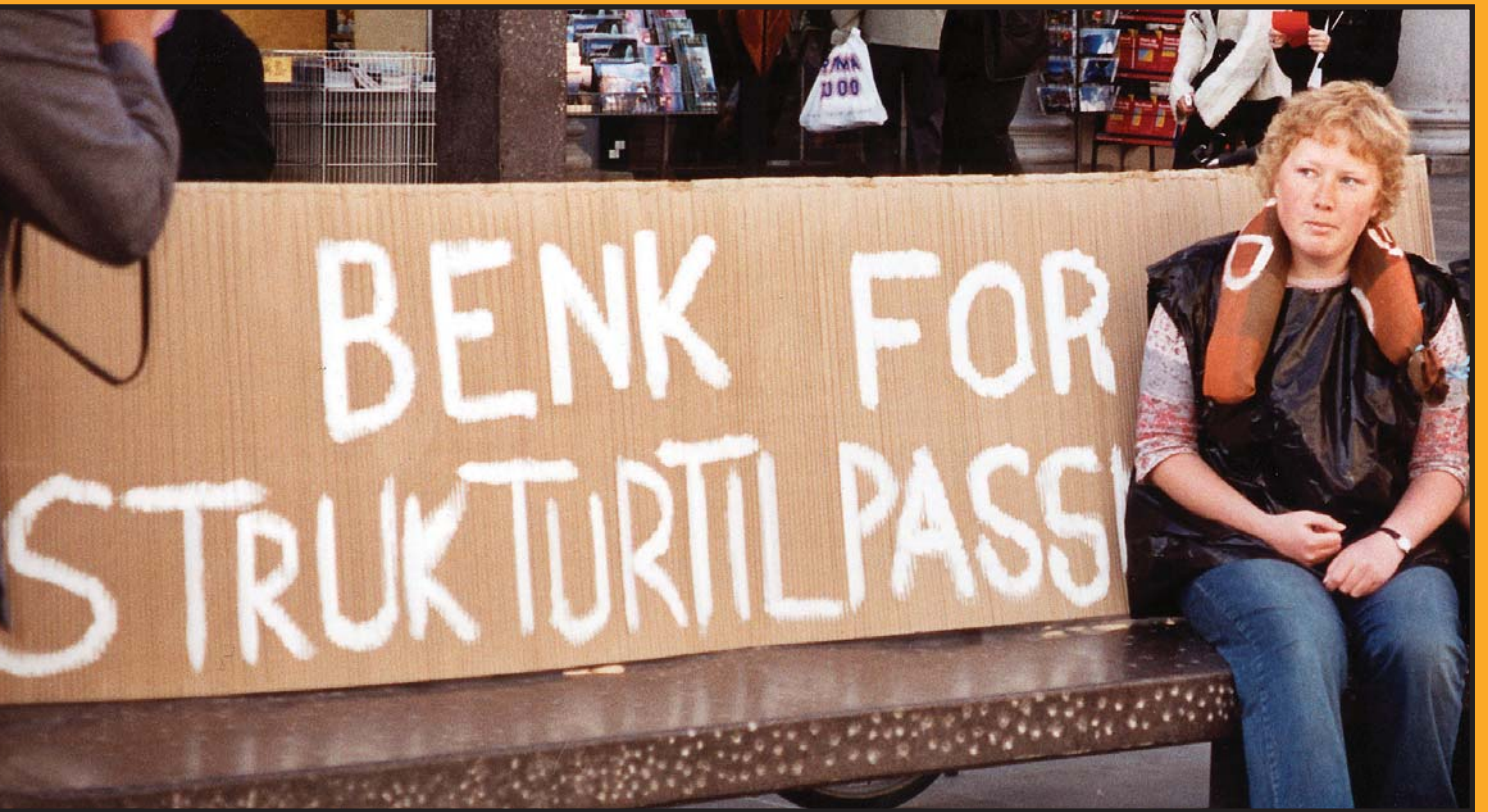 BENK FOR
STRUKTURTILPASS